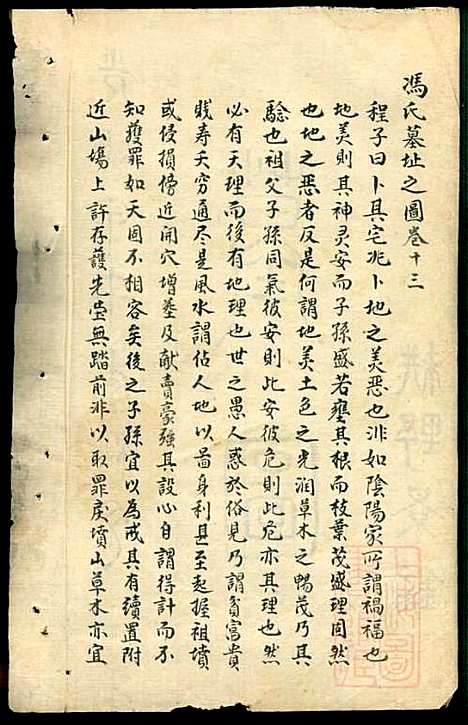 馮氏墓址之圖卷十三
程子曰卜其宅兆卜地之美惡也非如陰陽家所謂禍福也
地美則其神灵安而子孫盛若壅其根而枝葉茂盛理固然
也地之惡者反是何謂地美土色之光润草木之暢茂乃其
驗也祖父子孫同氣彼安則此安彼危則此危亦其理也然
必有天理而後有地理也世之愚人惑於俗見乃謂貧富貴
賎寿夭穷通尽是風水謂佔人地以啚身利甚至起掘祖墳
或侵損傍近開穴增塟及献賣豪强其設心自謂得計而不
知獲罪如天固不相容矣後之子孫宜以為戒其有續置附
近山塲上許存護先塋無踏前非以取罪戾墳山草木亦宜